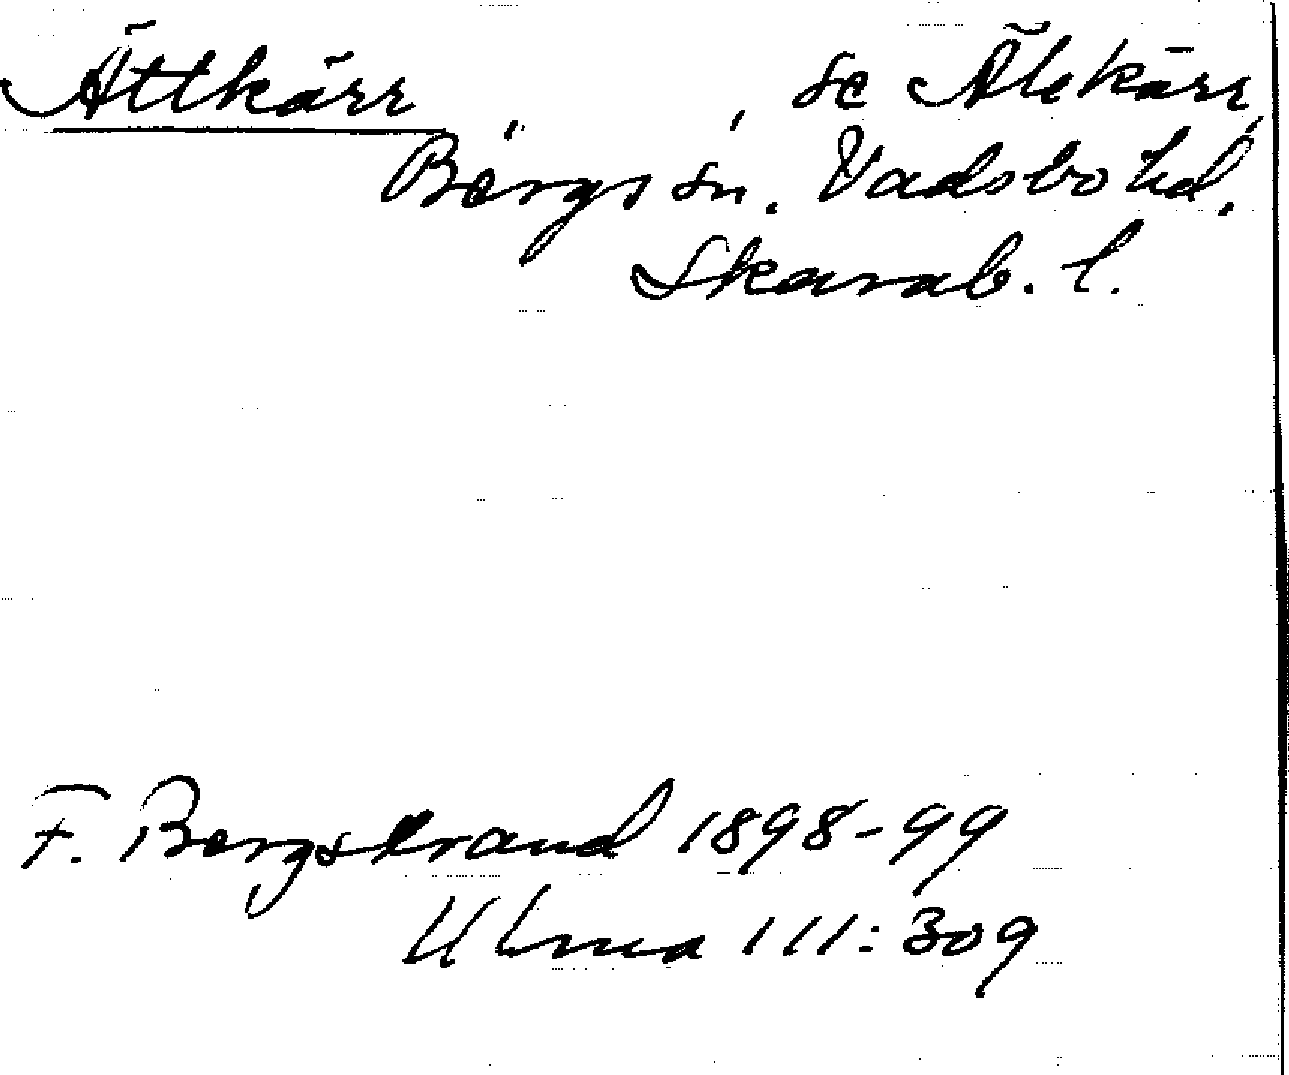 Ättkärr, se Älekärr,
Bergs sn. Vadsbo hd.
Skarab. l.
F. Bergstrand 1898-99
Ulma 111:309